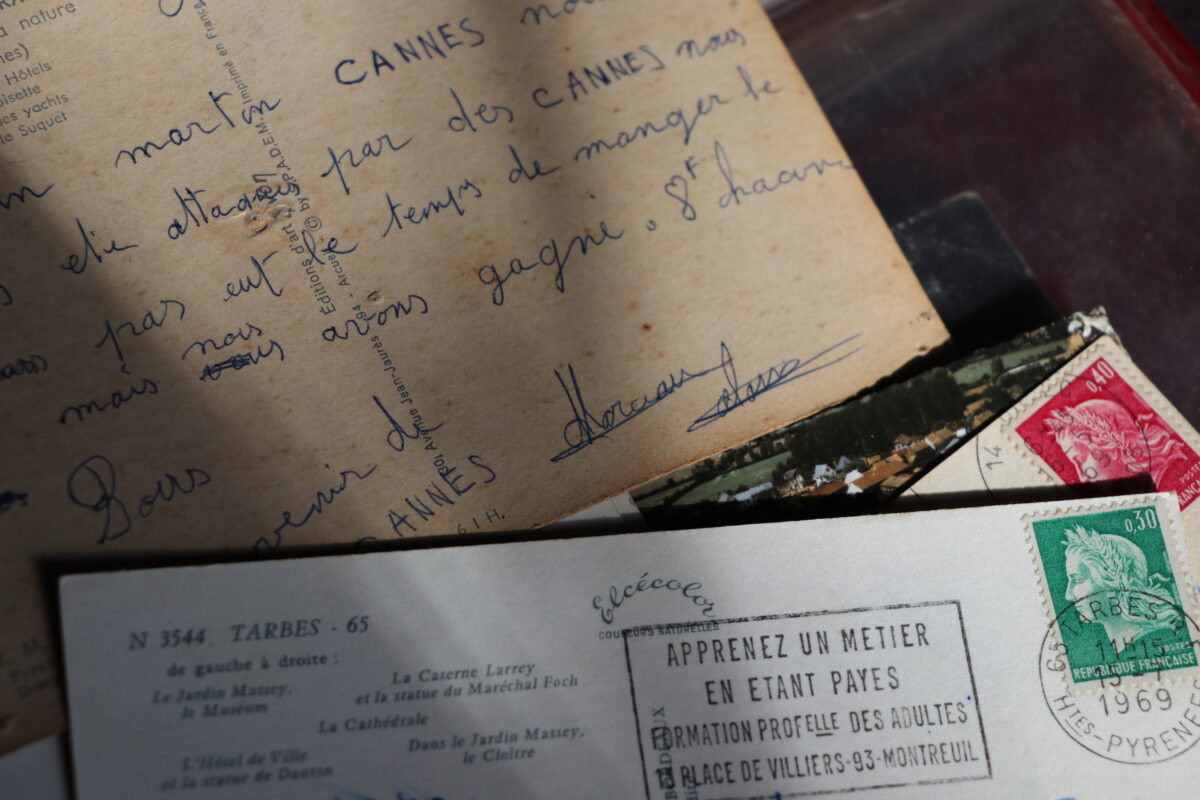 a nature
Hôtels
des yachts
le Suquet
Editions d'art © by S.P.A.D.E.M. Imprimé en France
Avenue Jean-Jaurès 94 - Arcueil
CANNES
martin
attaqués par des CANNES nous
pas eut le temps de manger le
mais nous avons gagné. 8F
Bons
venir de
CANNES
6 I H.
0,40
14
N 3544 TARBES - 65
de gauche à droite :
Le Jardin Massey,
le Muséum
La Caserne Larrey
et la statue du Maréchal Foch
La Cathédrale
L'Hôtel de Ville
et la statue de Danton
Dans le Jardin Massey,
le Cloître
Elcécolor
COULEURS NATURELLES
APPRENEZ UN METIER
EN ETANT PAYES
FORMATION PROFELLE DES ADULTES
13 PLACE DE VILLIERS-93-MONTREUIL
0,30
POSTES
REPUBLIQUE FRANÇAISE
65 TARBES
11H15
1969
HTES-PYRENEES